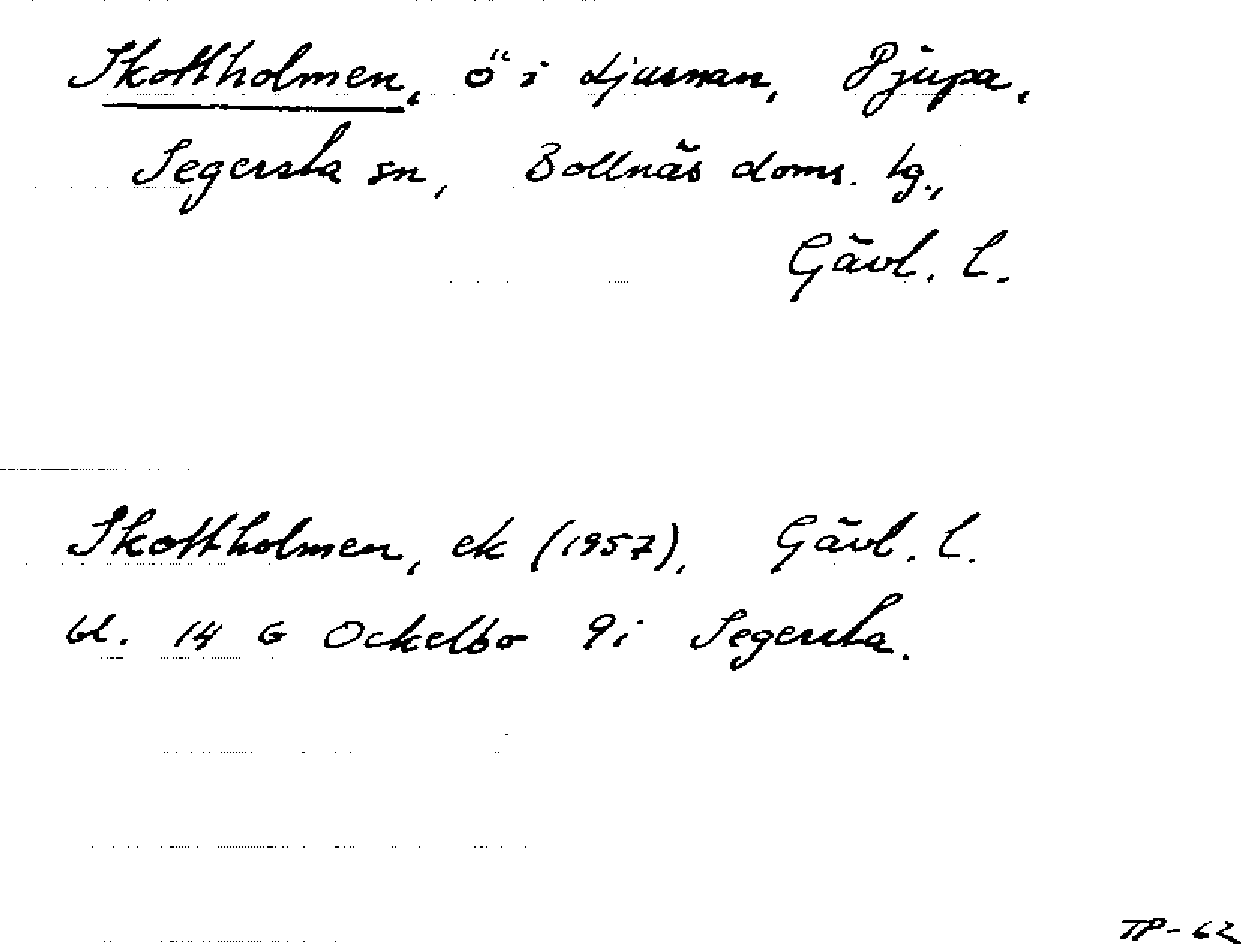 Skottholmen, ö i Ljusnan, Pjüpa,
Segersta sn, Bollnäs doms. tg.,
Gävl. l.
Skottholmen, ek (1957), Gävl. l.
bl. 14 G Ockelbo 9i Segersta.
TP-62